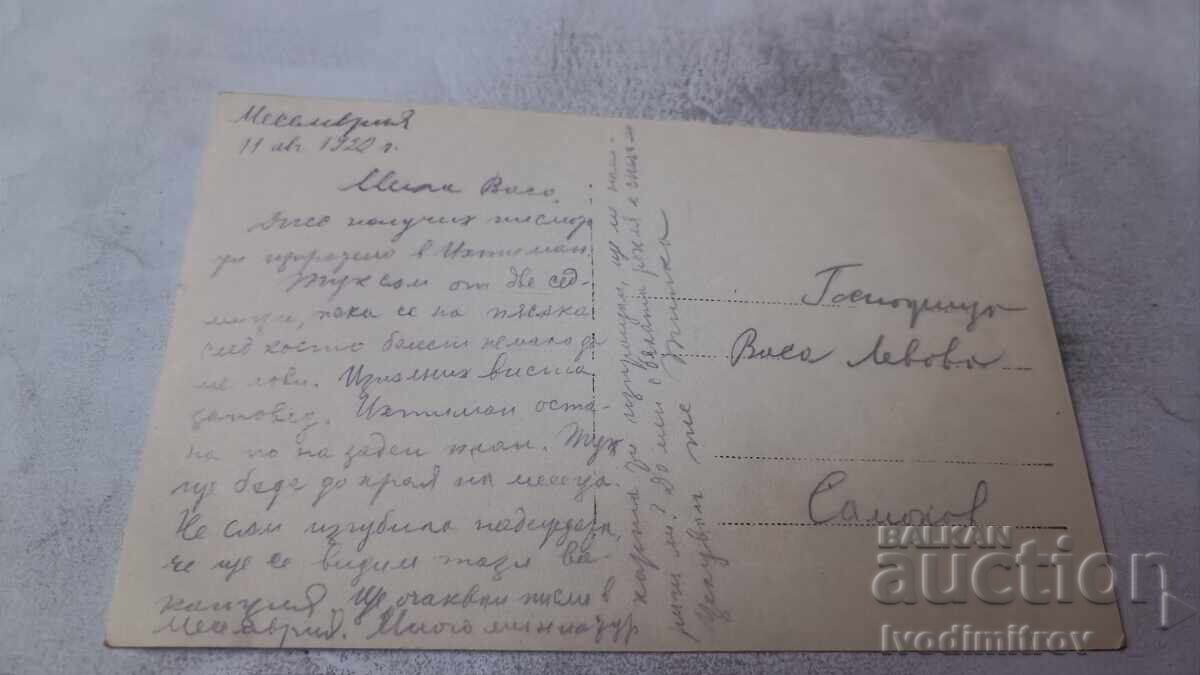 Месемврия
11 авг 1920 г.
Мила Васо,
Днес получих писмото
ти изпратено в Ихтиман.
Тук съм от две сед-
мици, пека се на пясъка
след което болест немало да
ме лови. Изпълних
заповед. Ихтиман оста-
на по на заден план. Тук
ще бъда до края на месеца.
Не съм изгубила надежда,
че ще се видим тази ва-
канция. Ще очаквам писмо в
Месемврия. Много
картна ти изпращам, ще ли
ми? До мен с
Целувам те
Госпожица
Васа Левова
Самоков
BALKAN
auction
Ivodimitrov